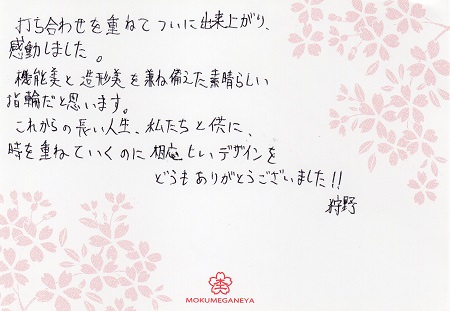 打ち合わせを重ねてついに出来上がり、
感動しました。
機能美と造形美を兼ね備えた素晴らしい
指輪だと思います。
これからの長い人生、私たちと供に、
時を重ねていくのに相応しいデザインを
どうもありがとうございました!!
狩野
MOKUMEGANEYA